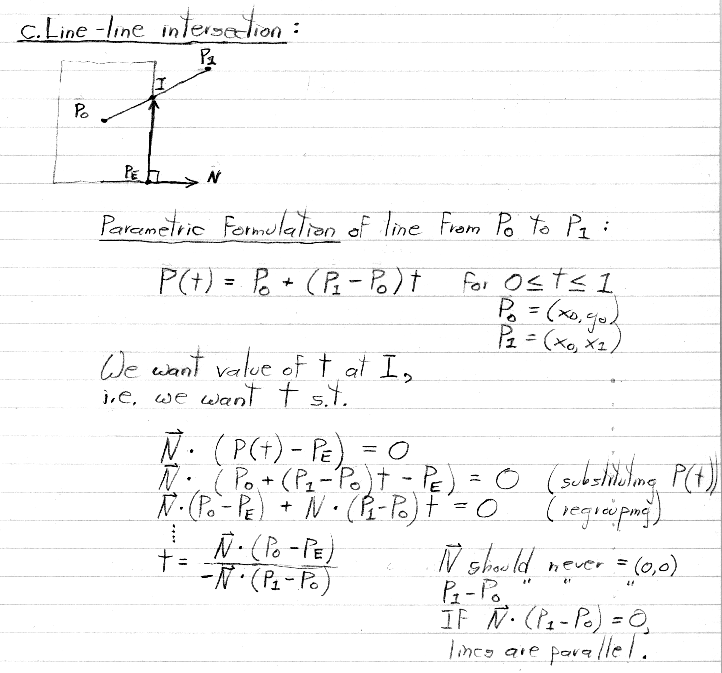 C. Line-line intersection:
P1
I
P0
PE
N
Parametric Formulation of line from P0 to P1:
P(t) = P0 + (P1 - P0)t for 0 ≤ t ≤ 1
P0 = (x0, y0)
P1 = (x0, x1)
We want value of t at I,
i.e. we want t s.t.
N⃗ · (P(t) - PE) = 0
N⃗ · (P0 + (P1 - P0)t - PE) = 0 (substituting P(t))
N⃗ · (P0 - PE) + N · (P1 - P0)t = 0 (regrouping)
⋮
t = N⃗ · (P0 - PE) / -N⃗ · (P1 - P0)
N⃗ should never = (0,0)
P1 - P0 " " "
IF N⃗ · (P1 - P0) = 0,
lines are parallel.